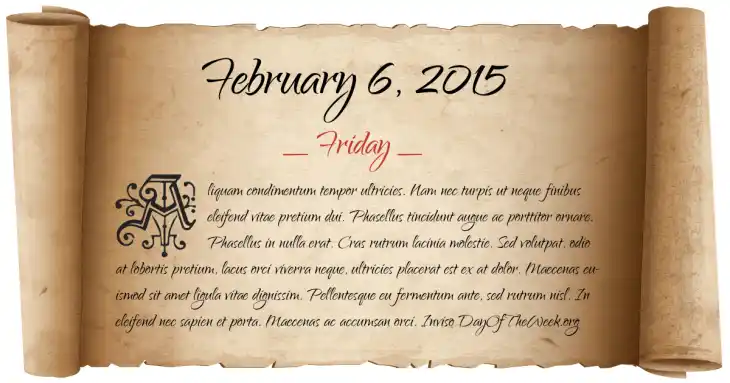 February 6, 2015
— Friday —
Aliquam condimentum tempor ultricies. Nam nec turpis ut neque finibus
eleifend vitae pretium dui. Phasellus tincidunt augue ac porttitor ornare.
Phasellus in nulla erat. Cras rutrum lacinia molestie. Sed volutpat, odio
at lobortis pretium, lacus orci viverra neque, ultricies placerat est ex at dolor. Maecenas eu-
ismod sit amet ligula vitae dignissim. Pellentesque eu fermentum ante, sed rutrum nisl. In
eleifend nec sapien et porta. Maecenas ac accumsan orci. Invise DayOfTheWeek.org